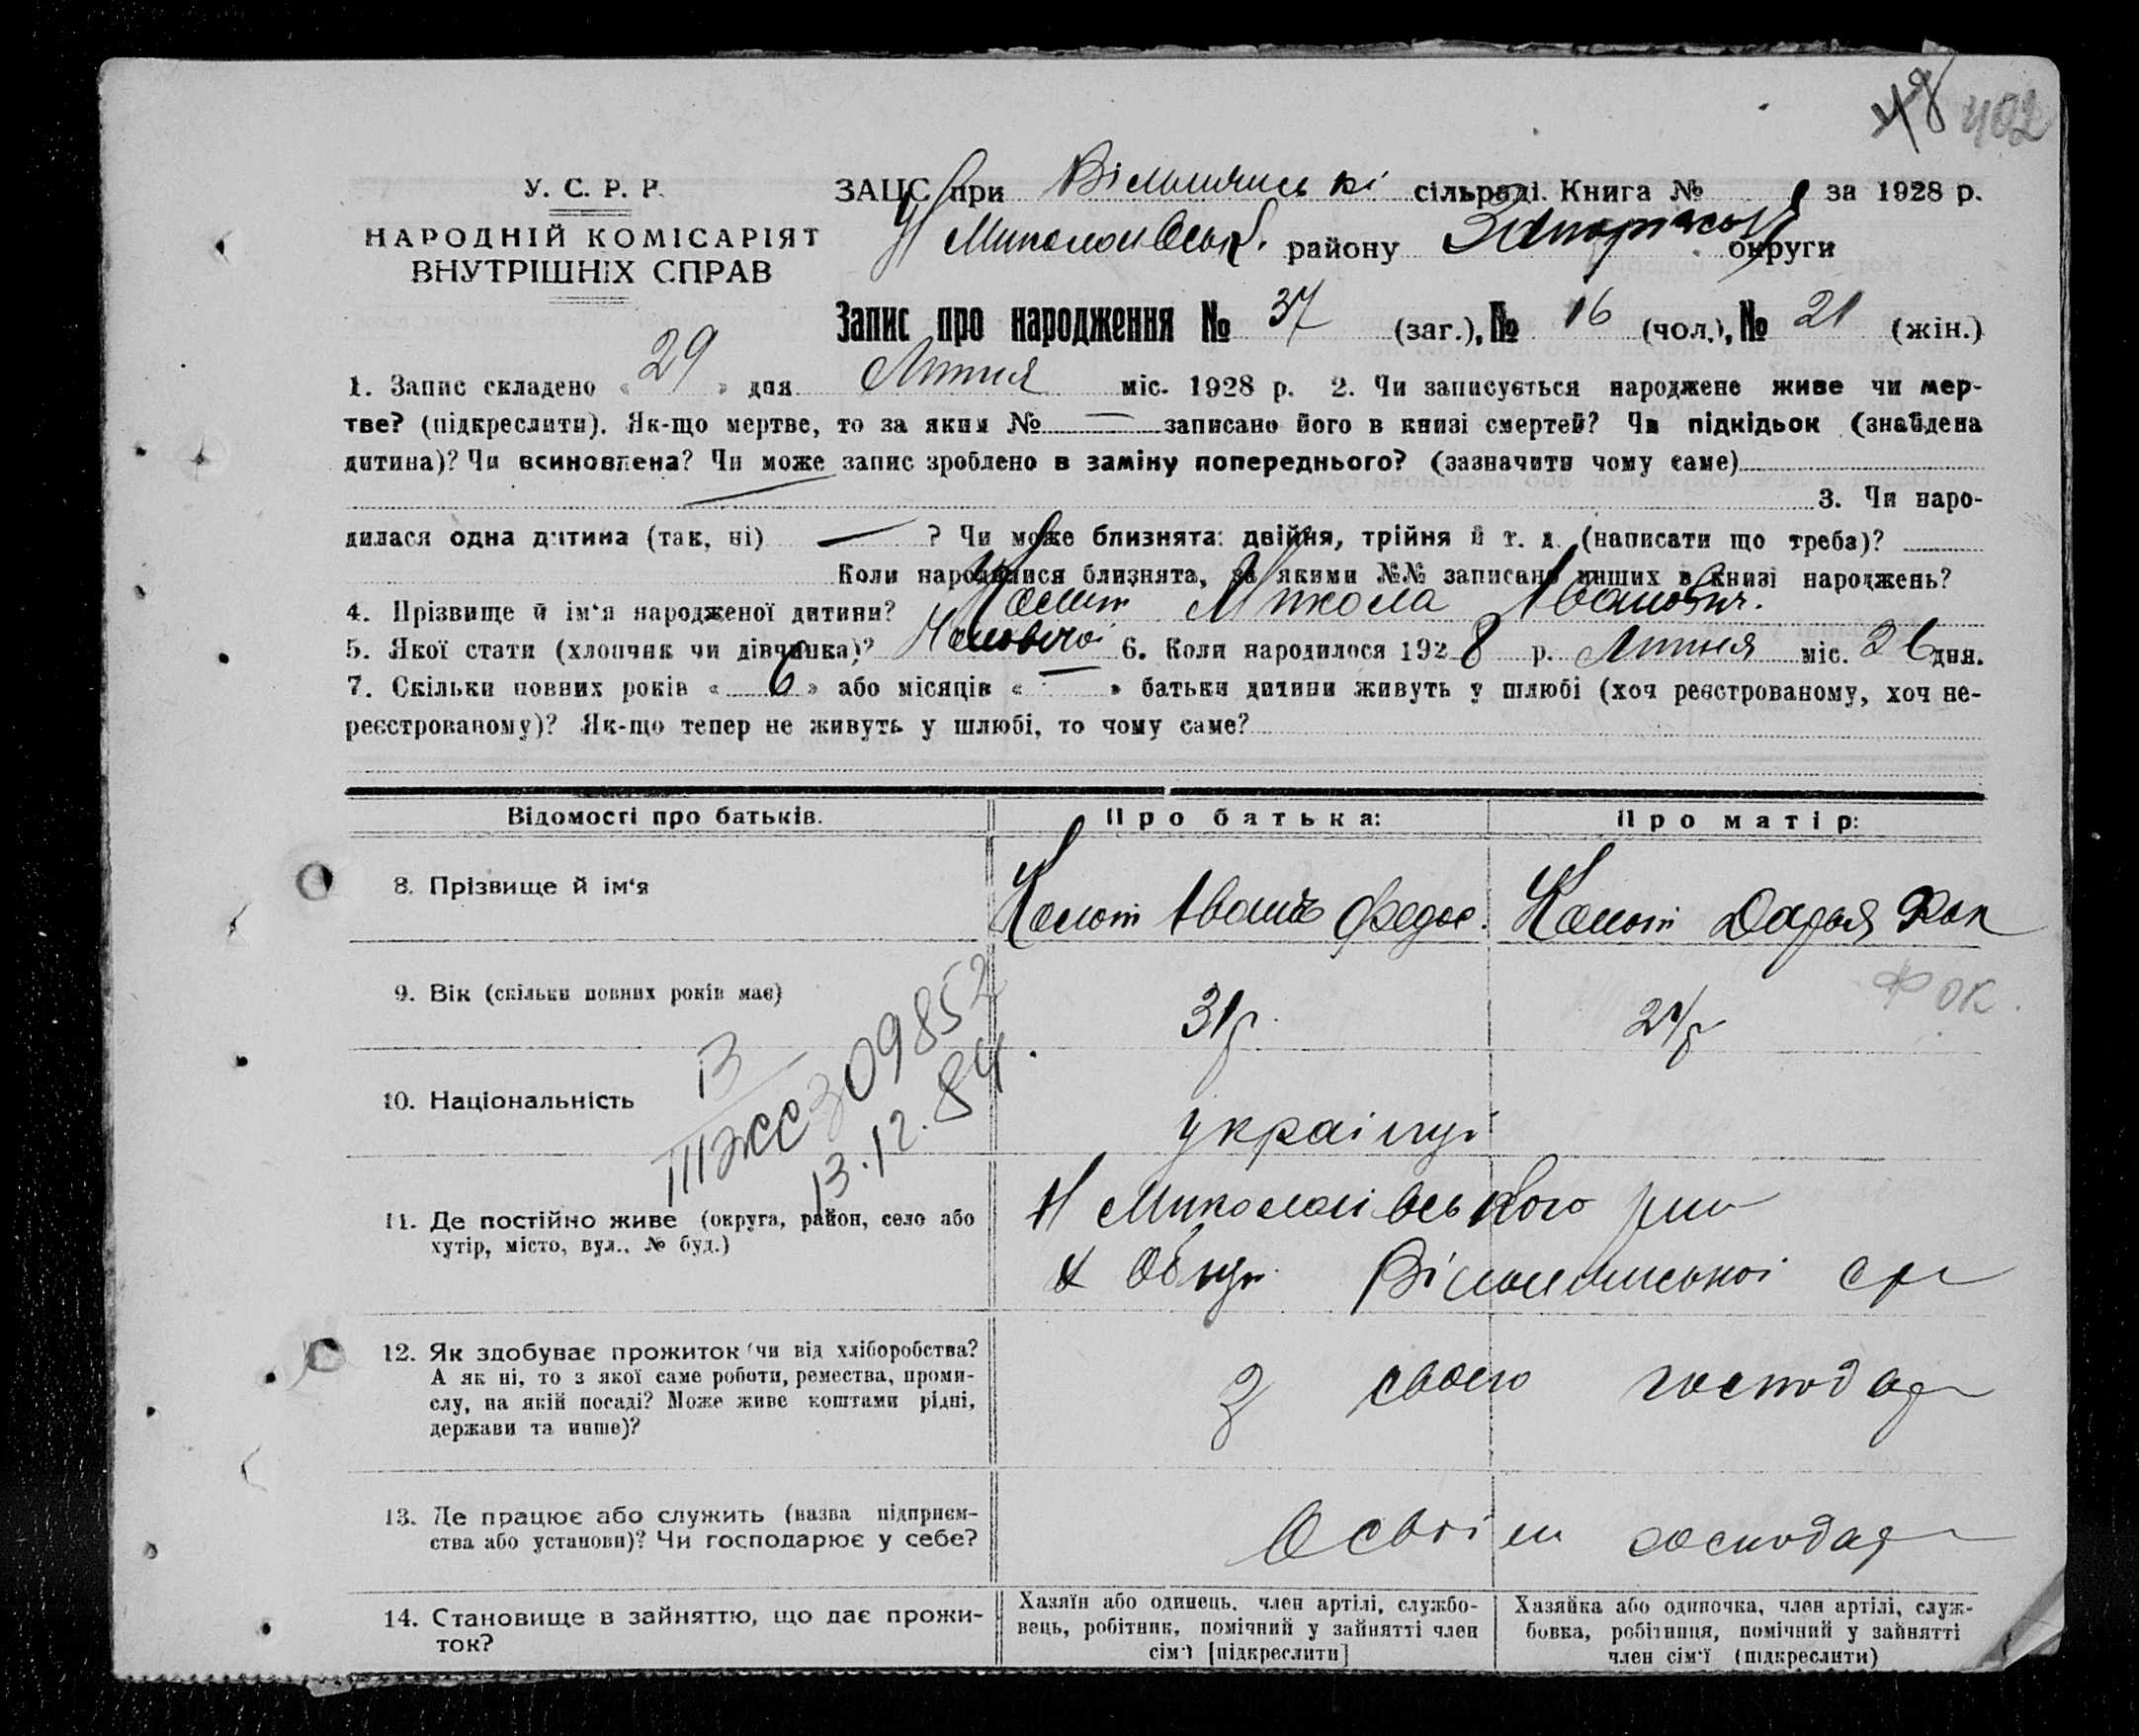 48 402
У. С. Р. Р.
НАРОДНІЙ КОМІСАРІЯТ
ВНУТРІШНІХ СПРАВ
ЗАЦС при сільраді. Книга № за 1928 р.
району округи
Запис про народження № 37 (заг.), № 16 (чол.), № 21 (жін.)
1. Запис складено « 29 » дня Липня міс. 1928 р. 2. Чи записується народжене живе чи мер-
тве? (підкреслити). Як-що мертве, то за яким № — записано його в книзі смертей? Чи підкідьок (знайдена
дитина)? Чи всиновлена? Чи може запис зроблено в заміну попереднього? (зазначити чому саме)
3. Чи наро-
дилася одна дитина (так, ні) — ? Чи може близнята: двійня, трійня й т. д. (написати що треба)?
Коли народилися близнята, за якими №№ записано инших в книзі народжень?
4. Прізвище й ім‘я народженої дитини? Микола Іванович.
5. Якої стати (хлопчик чи дівчинка)? 6. Коли народилося 1928 р. Липня міс. 26 дня.
7. Скільки повних років « 6 » або місяців « — » батьки дитини живуть у шлюбі (хоч реєстрованому, хоч не-
реєстрованому)? Як-що тепер не живуть у шлюбі, то чому саме?
Відомості про батьків. Про батька: Про матір:
8. Прізвище й ім‘я Федос. Дарья Фок
Фок.
9. Вік (скільки повних років має) 31 р.
10. Національність українці
III ЖС 309852
13.12.84
11. Де постійно живе (округа, район, село або
хутір, місто, вул., № буд.)
Н Миколаівського
12. Як здобуває прожиток (чи від хліборобства?
А як ні, то з якої саме роботи, ремества, проми-
слу, на якій посаді? Може живе коштами рідні,
держави та инше)?
З свого господар
13. Де працює або служить (назва підприєм-
ства або установи)? Чи господарює у себе?
В своім господар
14. Становище в зайняттю, що дає прожи-
ток?
Хазяїн або одинець, член артілі, службо-
вець, робітник, помічний у зайнятті член
сім‘ї [підкреслити]
Хазяйка або одиночка, член артілі, служ-
бовка, робітниця, помічний у зайнятті
член сім‘ї (підкреслити)